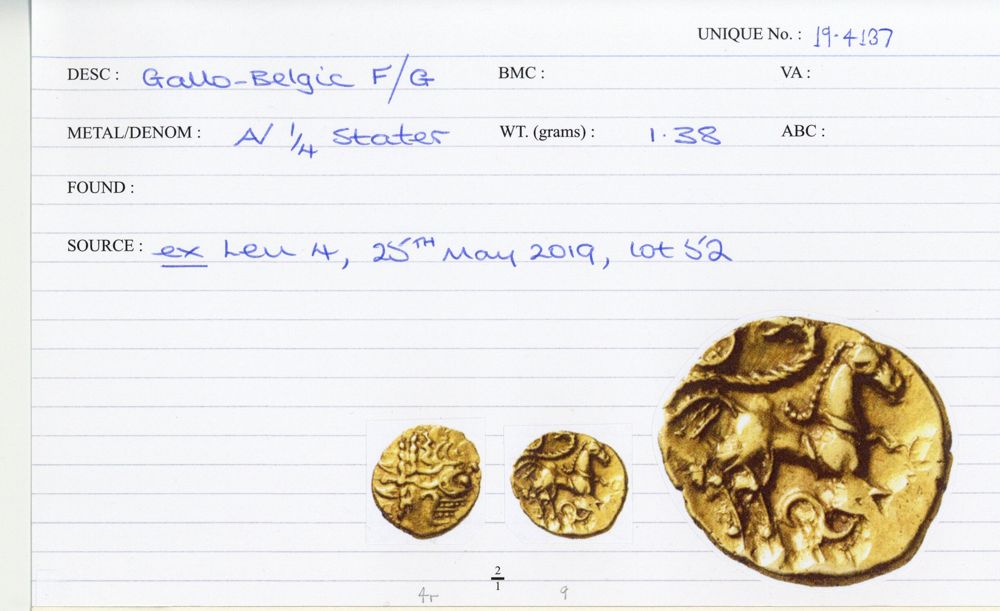 UNIQUE No. : 19.4137
DESC : Gallo-Belgic F/G BMC : VA :
METAL/DENOM : A/ 1/4 Stater WT. (grams) : 1.38 ABC :
FOUND :
SOURCE : ex Leu 4, 25TH May 2019, lot 52
2/1
4r 9